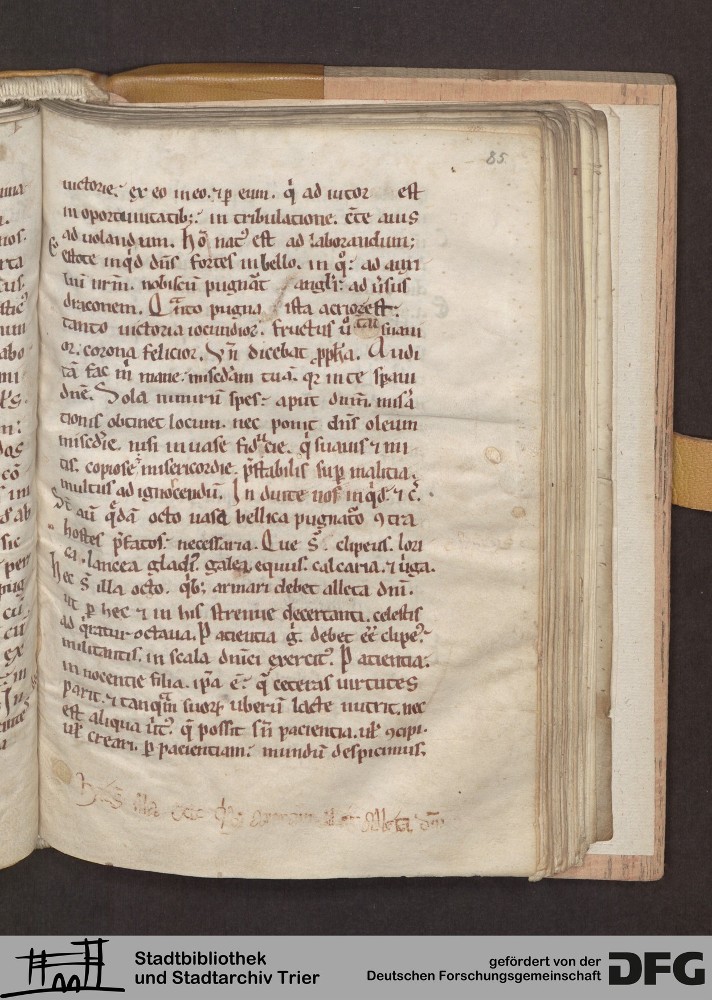 85
uictorie. ex eo in eo. ⁊ p eum. q̓ ad iutor est
in oportunitatib; in tribulatione. ēc̄e auis
ad uolandum. hō nat᷒ est ad laborandum;
estote inq̇d dn̄s fortes in bello. in q̊: ad
uirm̄. nobiscū pugnāt angl̓i: ad ūsus
draconem. Q̄nto pugna ista acrior est.
tanto uictoria iocundior. fructus ū suaui
or. corona felicior. Vn̄ dicebat ꝓpħa. Audi
tā fac m̓ mane: misc̄diam tuā. qr in te spaui
dn̄e. Sola nimirū spes: aput dnm̄. misā
tionis obtinet locum. nec ponit dn̄s oleum
misc̄die. nisi in uase fiducie. q̓ suauis ⁊ mi
tis. copiose misericordie. p̄stabilis sup malicia.
multus ad ignoscendū. In duite nos inq̇d. ⁊ c̄.
St̄ aū q̇dā octo uasa bellica pugnat̓o 9tra
hostes p̄fatos: necessaria. Que s̄. clipeus. lori
ca. lancea gladi᷒. galea. equus. calcaria. ⁊ uirga.
Hec s̄ illa octo. q̓b; armari debet alleta dnī.
ut p hec ⁊ in his strenue decertanti. celestis
ad q̓ratur octaua. Paciencia g̊. debet ēē clipe᷒
militantis. in scala dn̄ici exercit᷒. Paciencia.
innocentie filia. ip̄a ē: q̄ ceteras uirtutes
parit. ⁊ tanq̄m suor̄ uberū lacte nutrit. nec
est aliqua uirt᷒. q̄ possit sn̄ paciencia. ul̓ 9cipi.
ul̓ creari. p pacientiam: mundū despicimus.
Hec s̄ illa octo q̓b; armari debet alleta dnī
Stadtbibliothek
und Stadtarchiv Trier
gefördert von der
Deutschen Forschungsgemeinschaft
DFG